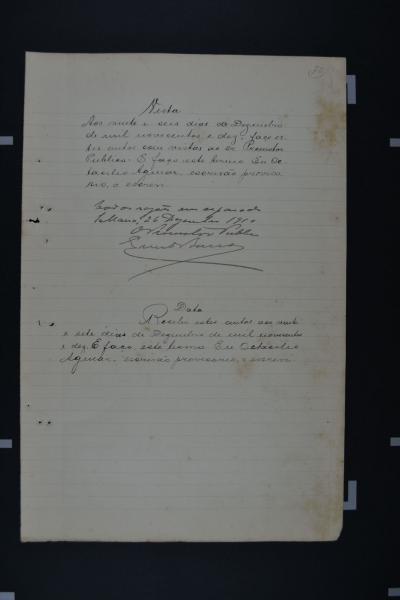 Vista
Aos vinte e seis dias de Dezembro
de mil novecentos e dez, faço es-
tes autos com vistas ao Dr Promotor
Publico. E faço este termo Eu Oc-
tacilio Aguiar, escrivão proviso-
rio, o escrevi.
razões em separado
26 Dezembro 1910
O Promotor Publico
Data
Recebi estes autos aos vinte
e sete dias de Dezembro de mil novecentos
e dez. E faço este termo Eu Octacilio
Aguiar, escrivão provisorio, o escrevi